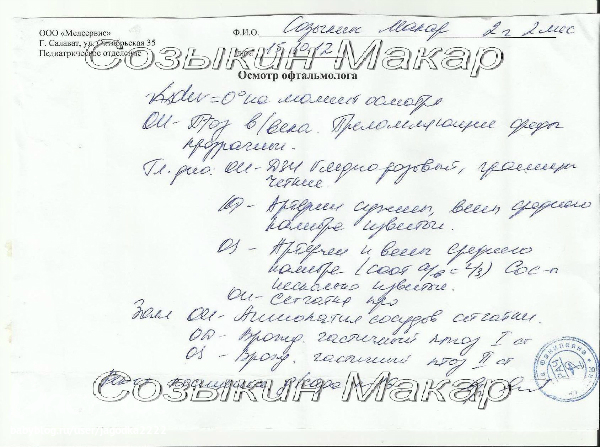 ООО «Медсервис» Ф.И.О. Созыкин Макар 2 г 2 мес
Г. Салават, ул. Октябрьская 35
Педиатрическое отделение
Созыкин Макар
Осмотр офтальмолога
= 0° на момент осмотра
OU - Птоз в/века. Преломляющие среды
прозрачны.
Гл. дно: OU - ДЗН бледно-розовый, границы
четкие.
OD - Артерии сужены, вены среднего
калибра извитые.
OS - Артерии и вены среднего
калибра (соот а/в = 2/3) Сос-ы
несколько извитые.
OU - Сетчатка
Закл OU - Ангиопатия сосудов сетчатки.
OD - Врожд. частичный птоз I ст
OS - Врожд. частичный птоз II ст
Созыкин Макар